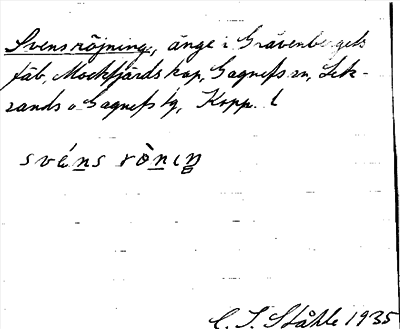 Svensröjning, änge i Grävenbergets
fäb, Mockfjärds kap, Gagnefs sn, Lek-
sands o Gagnefs tg, Kopp. l
svéns rònıŋ
C. I. Ståhle 1935